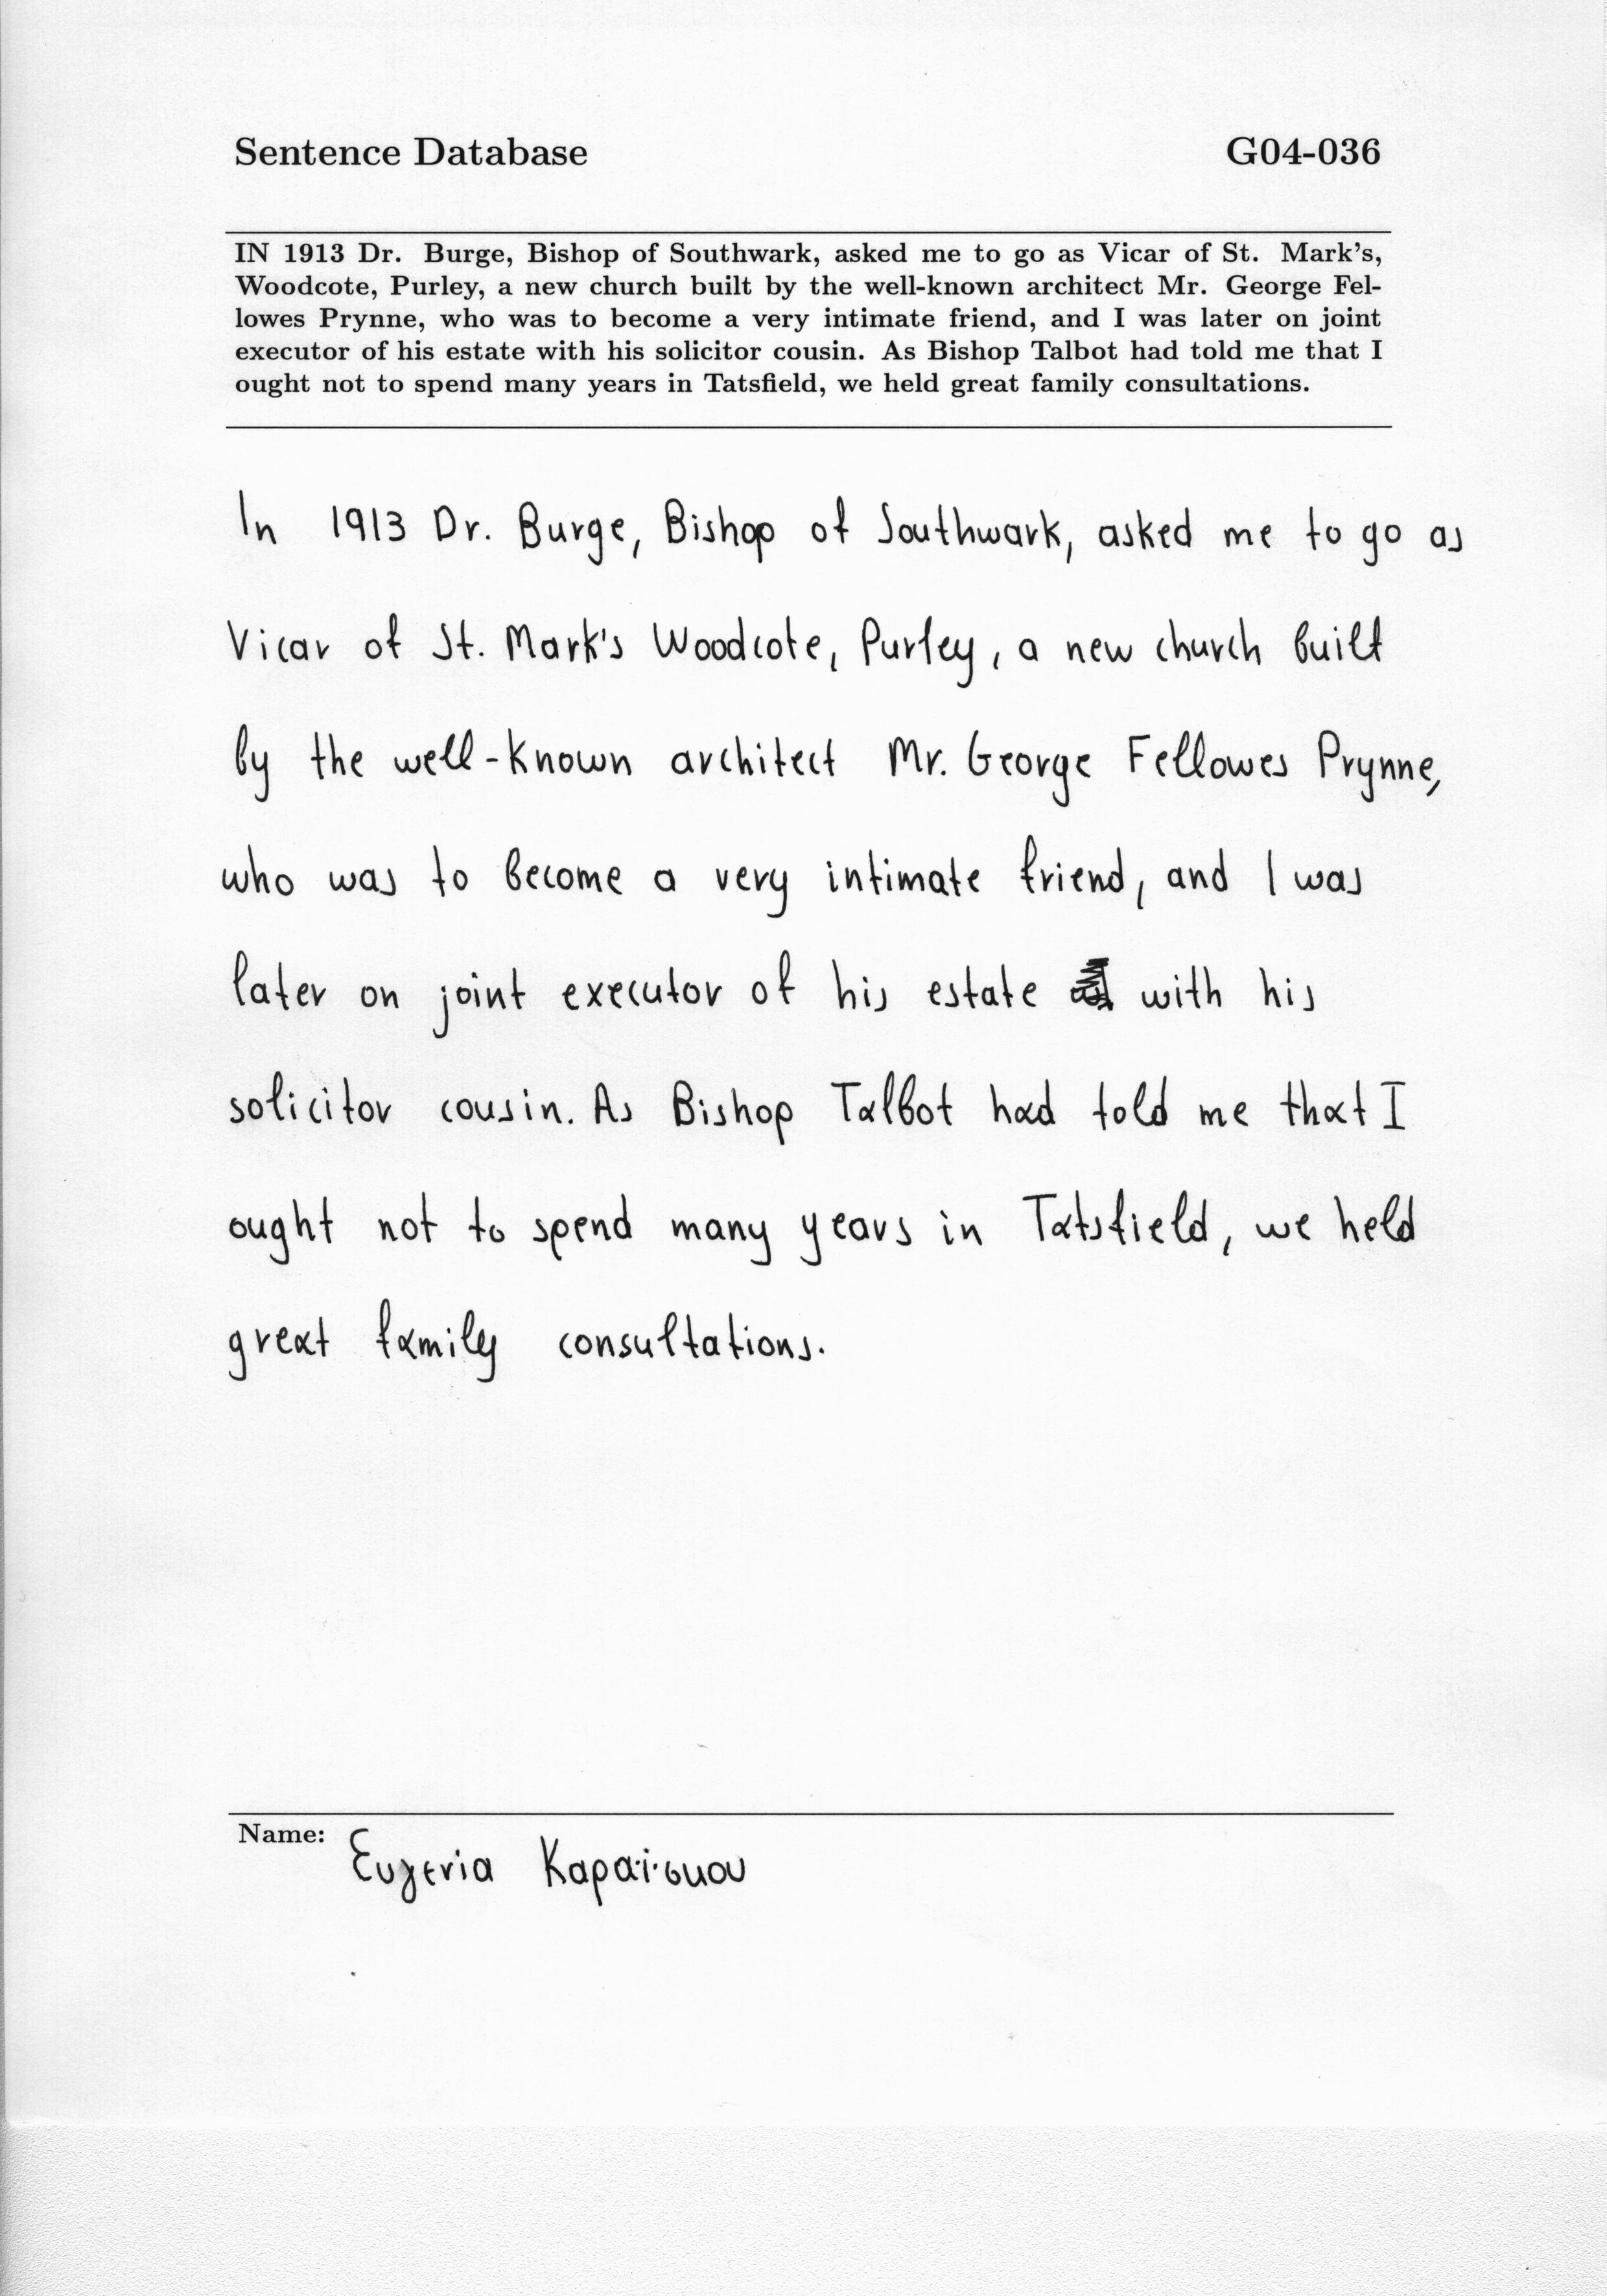 Sentence Database G04-036
IN 1913 Dr. Burge, Bishop of Southwark, asked me to go as Vicar of St. Mark's,
Woodcote, Purley, a new church built by the well-known architect Mr. George Fel-
lowes Prynne, who was to become a very intimate friend, and I was later on joint
executor of his estate with his solicitor cousin. As Bishop Talbot had told me that I
ought not to spend many years in Tatsfield, we held great family consultations.
In 1913 Dr. Burge, Bishop of Southwark, asked me to go as
Vicar of St. Mark's Woodcote, Purley, a new church built
by the well-known architect Mr. George Fellowes Prynne,
who was to become a very intimate friend, and I was
later on joint executor of his estate with his
solicitor cousin. As Bishop Talbot had told me that I
ought not to spend many years in Tatsfield, we held
great family consultations.
Name: Ευγενία Καραΐσκου